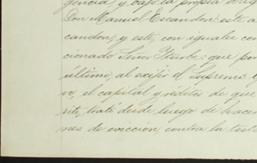 gencia, y bajo la propia
Don Manuel Escandon: este a
candon, y este, con iguales con
cionado Señor Iturbe: que por
último, al exigir el Supremo
vo, el capital y réditos de que
site, traté desde luego de hacer
nes de eviccion, contra la testa